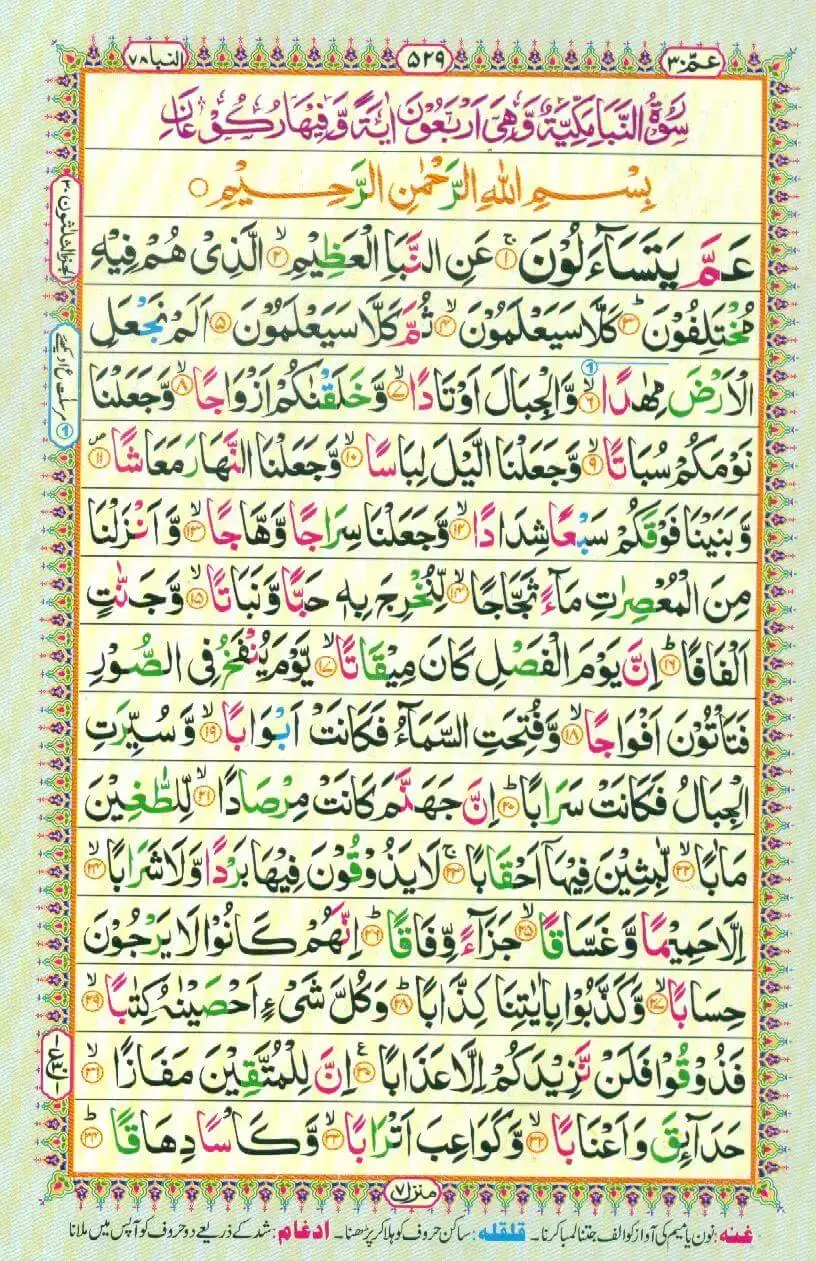 عمّ ۳۰
۵۲۹
النبا ۷۸
سُوْرَةُ النَّبَاِ مَكِّيَّةٌ وَّهِىَ اَرْبَعُوْنَ اٰيَةً وَّفِيْهَا رُكُوْعَانِ
بِسْمِ اللهِ الرَّحْمٰنِ الرَّحِيْمِ ○
عَمَّ يَتَسَآءَلُوْنَ ۚ‏﴿۱﴾ عَنِ النَّبَاِ الْعَظِيْمِۙ‏﴿۲﴾ الَّذِىْ هُمْ فِيْهِ
مُخْتَلِفُوْنَؕ‏﴿۳﴾ كَلَّا سَيَعْلَمُوْنَۙ‏﴿۴﴾ ثُمَّ كَلَّا سَيَعْلَمُوْنَ‏﴿۵﴾ اَلَمْ نَجْعَلِ
الْاَرْضَ مِهٰدًاۙ‏﴿۶﴾ وَّالْجِبَالَ اَوْتَادًاۙ‏﴿۷﴾ وَّخَلَقْنٰكُمْ اَزْوَاجًاۙ‏﴿۸﴾ وَّجَعَلْنَا
نَوْمَكُمْ سُبَاتًاۙ‏﴿۹﴾ وَّجَعَلْنَا الَّيْلَ لِبَاسًاۙ‏﴿۱۰﴾ وَّجَعَلْنَا النَّهَارَ مَعَاشًا‏﴿۱۱﴾
وَّبَنَيْنَا فَوْقَكُمْ سَبْعًا شِدَادًاۙ‏﴿۱۲﴾ وَّجَعَلْنَا سِرَاجًا وَّهَّاجًاۙ‏﴿۱۳﴾ وَّاَنْزَلْنَا
مِنَ الْمُعْصِرٰتِ مَآءً ثَجَّاجًاۙ‏﴿۱۴﴾ لِّنُخْرِجَ بِهٖ حَبًّا وَّنَبَاتًاۙ‏﴿۱۵﴾ وَّجَنّٰتٍ
اَلْفَافًاؕ‏﴿۱۶﴾ اِنَّ يَوْمَ الْفَصْلِ كَانَ مِيْقَاتًاۙ‏﴿۱۷﴾ يَّوْمَ يُنْفَخُ فِى الصُّوْرِ
فَتَاْتُوْنَ اَفْوَاجًاۙ‏﴿۱۸﴾ وَّفُتِحَتِ السَّمَآءُ فَكَانَتْ اَبْوَابًاۙ‏﴿۱۹﴾ وَّسُيِّرَتِ
الْجِبَالُ فَكَانَتْ سَرَابًاؕ‏﴿۲۰﴾ اِنَّ جَهَنَّمَ كَانَتْ مِرْصَادًاۙ‏﴿۲۱﴾ لِّلطّٰغِيْنَ
مَاٰبًاۙ‏﴿۲۲﴾ لّٰبِثِيْنَ فِيْهَاۤ اَحْقَابًاۚ‏﴿۲۳﴾ لَا يَذُوْقُوْنَ فِيْهَا بَرْدًا وَّلَا شَرَابًاۙ‏﴿۲۴﴾
اِلَّا حَمِيْمًا وَّغَسَّاقًاۙ‏﴿۲۵﴾ جَزَآءً وِّفَاقًاؕ‏﴿۲۶﴾ اِنَّهُمْ كَانُوْا لَا يَرْجُوْنَ
حِسَابًاۙ‏﴿۲۷﴾ وَّكَذَّبُوْا بِاٰيٰتِنَا كِذَّابًاؕ‏﴿۲۸﴾ وَكُلَّ شَىْءٍ اَحْصَيْنٰهُ كِتٰبًاۙ‏﴿۲۹﴾
فَذُوْقُوْا فَلَنْ نَّزِيْدَكُمْ اِلَّا عَذَابًا‏﴿۳۰﴾ اِنَّ لِلْمُتَّقِيْنَ مَفَازًاۙ‏﴿۳۱﴾
حَدَآئِقَ وَاَعْنَابًاۙ‏﴿۳۲﴾ وَّكَوَاعِبَ اَتْرَابًاۙ‏﴿۳۳﴾ وَّكَاْسًا دِهَاقًاؕ‏﴿۳۴﴾
منزل ۷
غنه: نون یا میم کی آواز کو الف جتنا لمبا کرنا۔ قلقله: ساکن حروف کو ہلا کر پڑھنا۔ ادغام: شد کے ذریعے دو حروف کو آپس میں ملانا